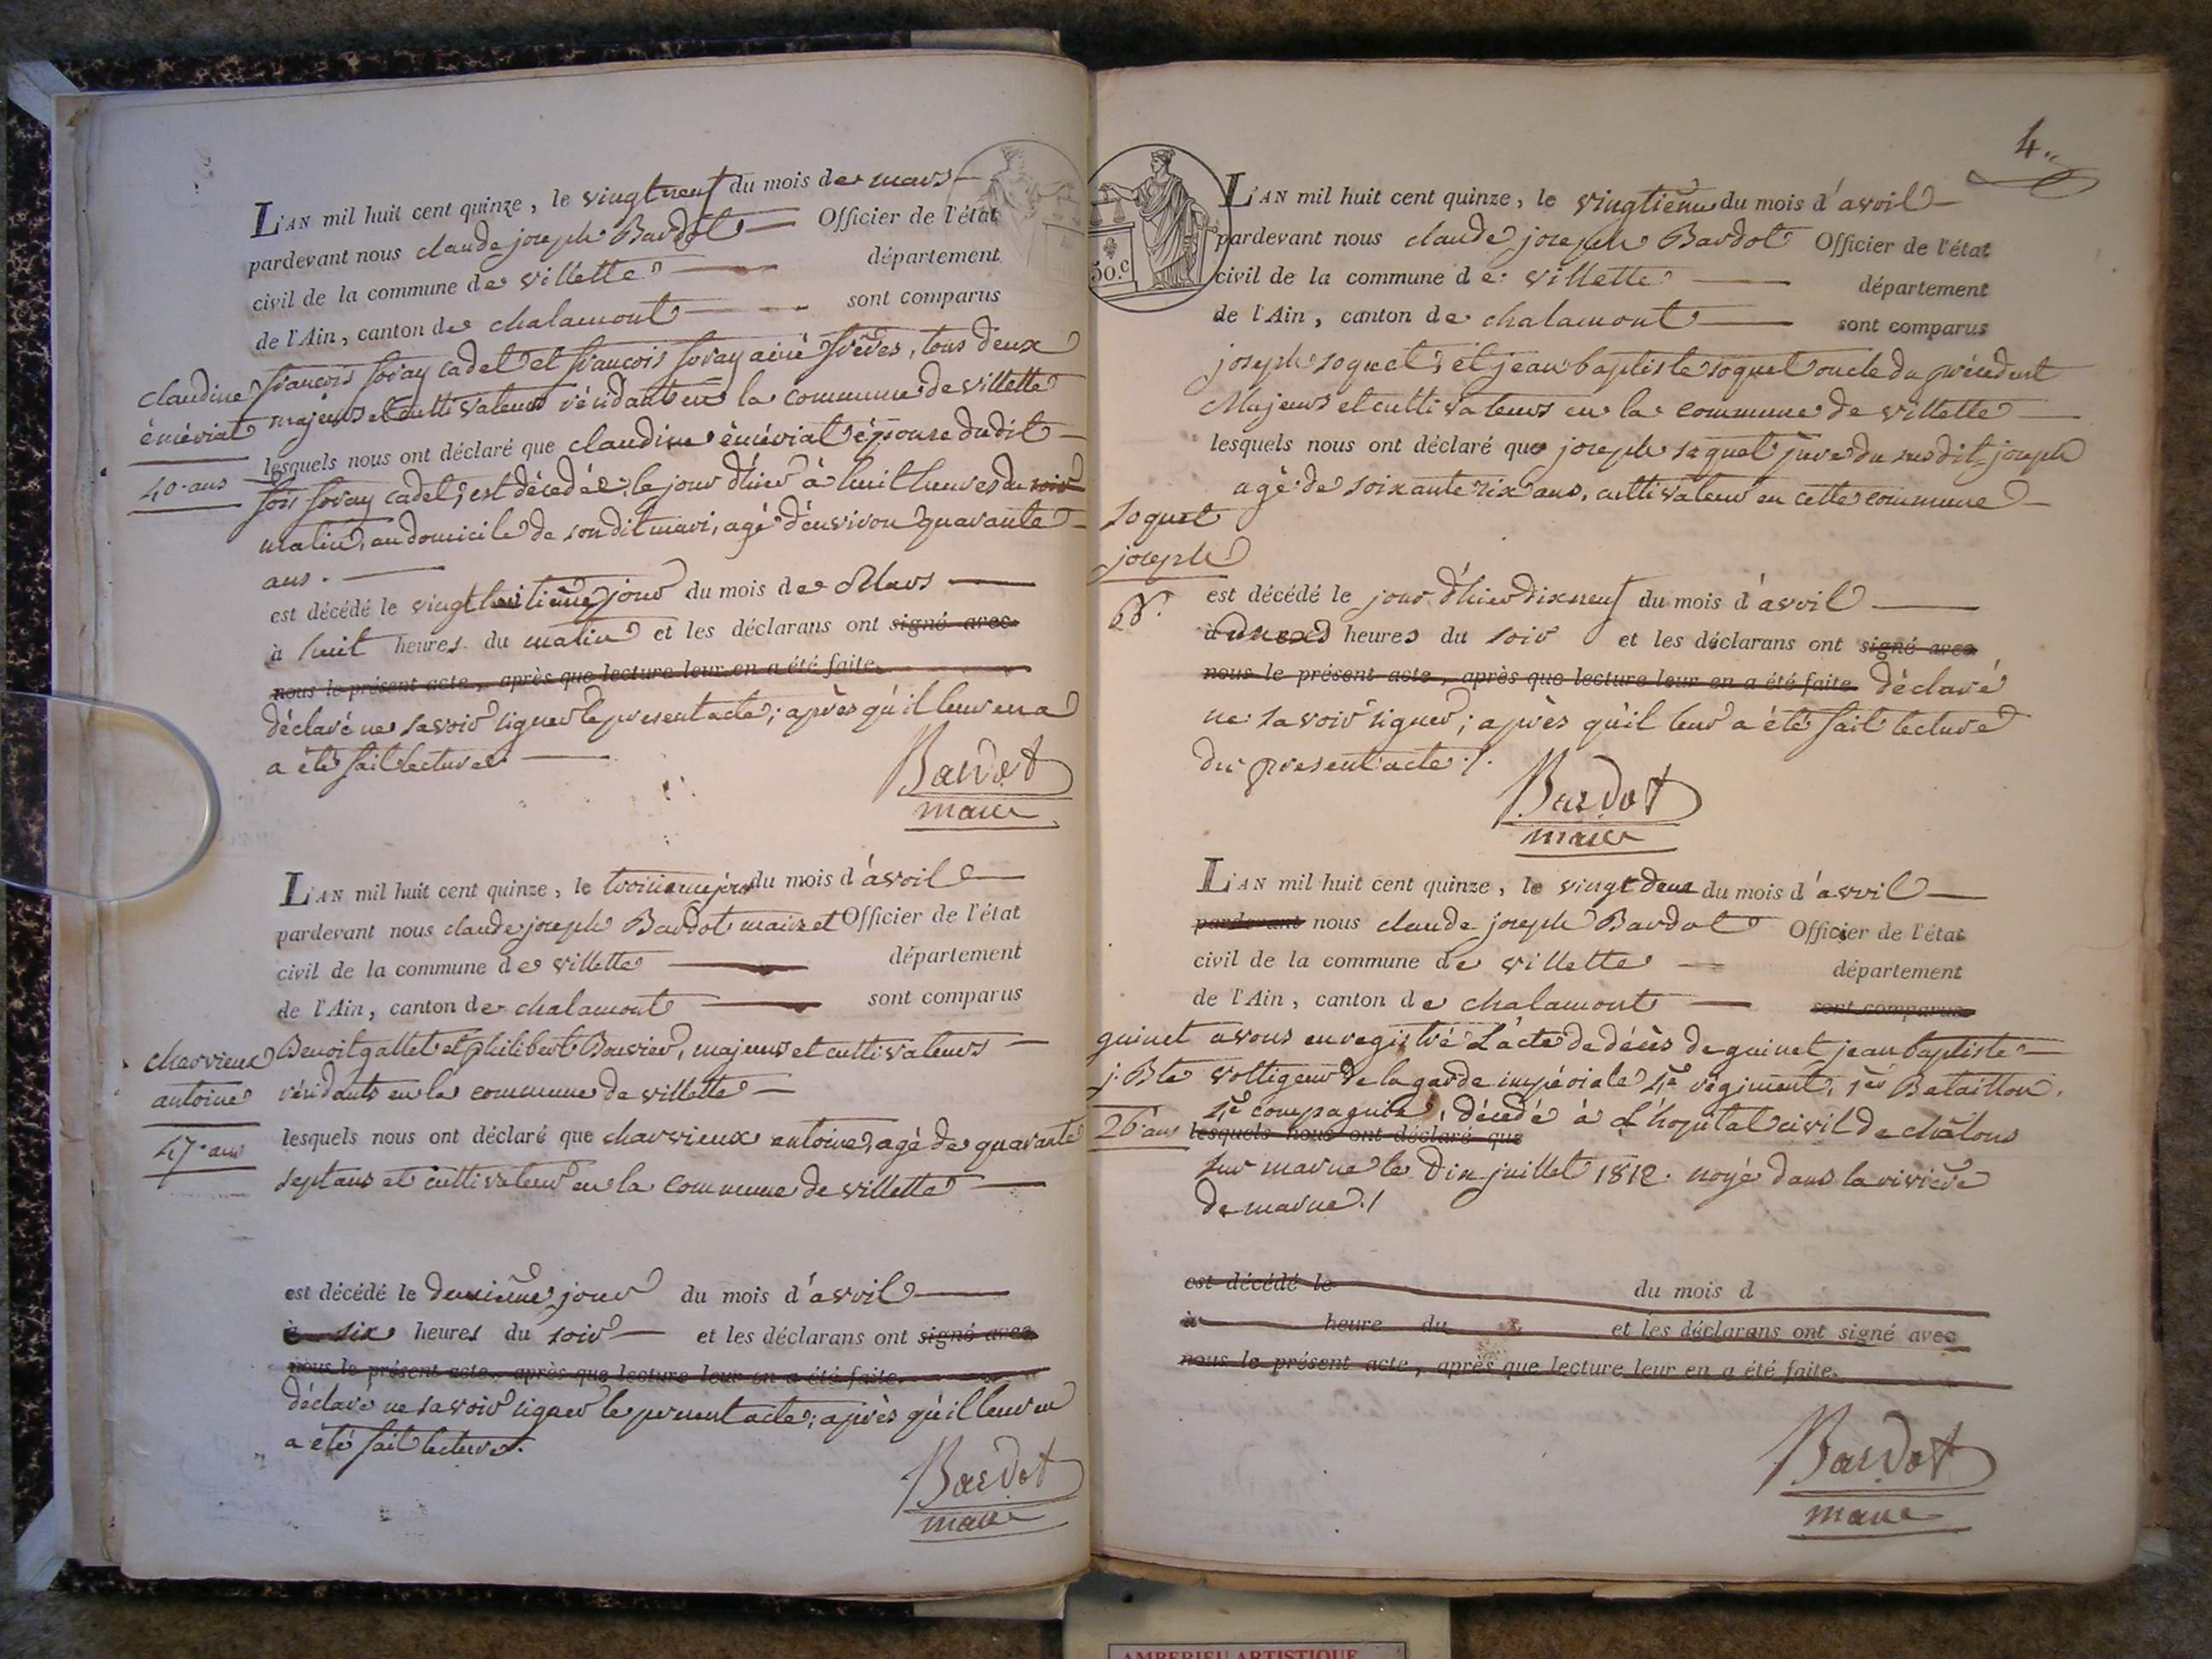 L'AN mil huit cent quinze, le vingt neuf du mois de mars
pardevant nous claude joseph Bardot Officier de l'état
civil de la commune de villette département
de l'Ain, canton de chalamont sont comparus
françois foray cadet et françois foray ainé frères, tous deux
majeurs et cultivateurs résidant en la commune de villette
claudine
éméviat
40 ans
lesquels nous ont déclaré que claudine éméviat épouse dudit
fois foray cadet, est décedée, le jour d'hier à huit heures du soir
matin, au domicile de son dit mari, agé d'environ quarante
ans.
est décédé le vingt huitième jour du mois de Mars
à huit heures du matin et les déclarans ont signé avec
nous le présent acte, après que lecture leur en a été faite.
déclaré ne savoir signer le present acte; après qu'il leur en a
a été fait lecture
Bardot
maire
L'AN mil huit cent quinze, le troisieme jour du mois d'avril
pardevant nous claude joseph Bardot maire et Officier de l'état
civil de la commune de villette département
de l'Ain, canton de chalamont sont comparus
Benoit gallet et philibert Bouvier, majeurs et cultivateurs
résidants en la commune de villette
charvieux
antoine
47 ans
lesquels nous ont déclaré que charvieux antoine, agé de quarante
sept ans et cultivateur en la commune de villette
est décédé le deuxième jour du mois d'avril
à six heures du soir et les déclarans ont signé avec
nous le présent acte, après que lecture leur en a été faite.
déclaré ne savoir signer le present acte; après qu'il leur en
a été fait lecture.
Bardot
maire
4
50.c
L'AN mil huit cent quinze, le vingtième du mois d'avril
pardevant nous claude joseph Bardot Officier de l'état
civil de la commune de villette département
de l'Ain, canton de chalamont sont comparus
joseph soquet, et jean baptiste soquet oncle du précédent
Majeurs et cultivateurs en la commune de villette
lesquels nous ont déclaré que joseph soquet père du susdit joseph
agé de soixante six ans, cultivateur en cette commune
soquet
joseph
est décédé le jour d'hier dix neuf du mois d'avril
à heures du soir et les déclarans ont signé avec
nous le présent acte, après que lecture leur en a été faite déclaré
ne savoir signer; après qu'il leur a été fait lecture
du present acte ./.
Bardot
maire
L'AN mil huit cent quinze, le vingt deux du mois d'avril
pardevant nous claude joseph Bardot Officier de l'état
civil de la commune de villette département
de l'Ain, canton de chalamont sont comparus
guinet
j. Bte
26 ans
avons enregistré L'acte de décès de guinet jean baptiste
voltigeur de la garde impériale 4e régiment, 1er Bataillon,
4e compagnie, décédé à L'hopital civil de châlons
lesquels nous ont déclaré que
sur marne le Dix juillet 1812. noyé dans la rivière
de marne./
est décédé le du mois d
à heure du et les déclarans ont signé avec
nous le présent acte, après que lecture leur en a été faite.
Bardot
maire
AMBERIEU ARTISTIQUE